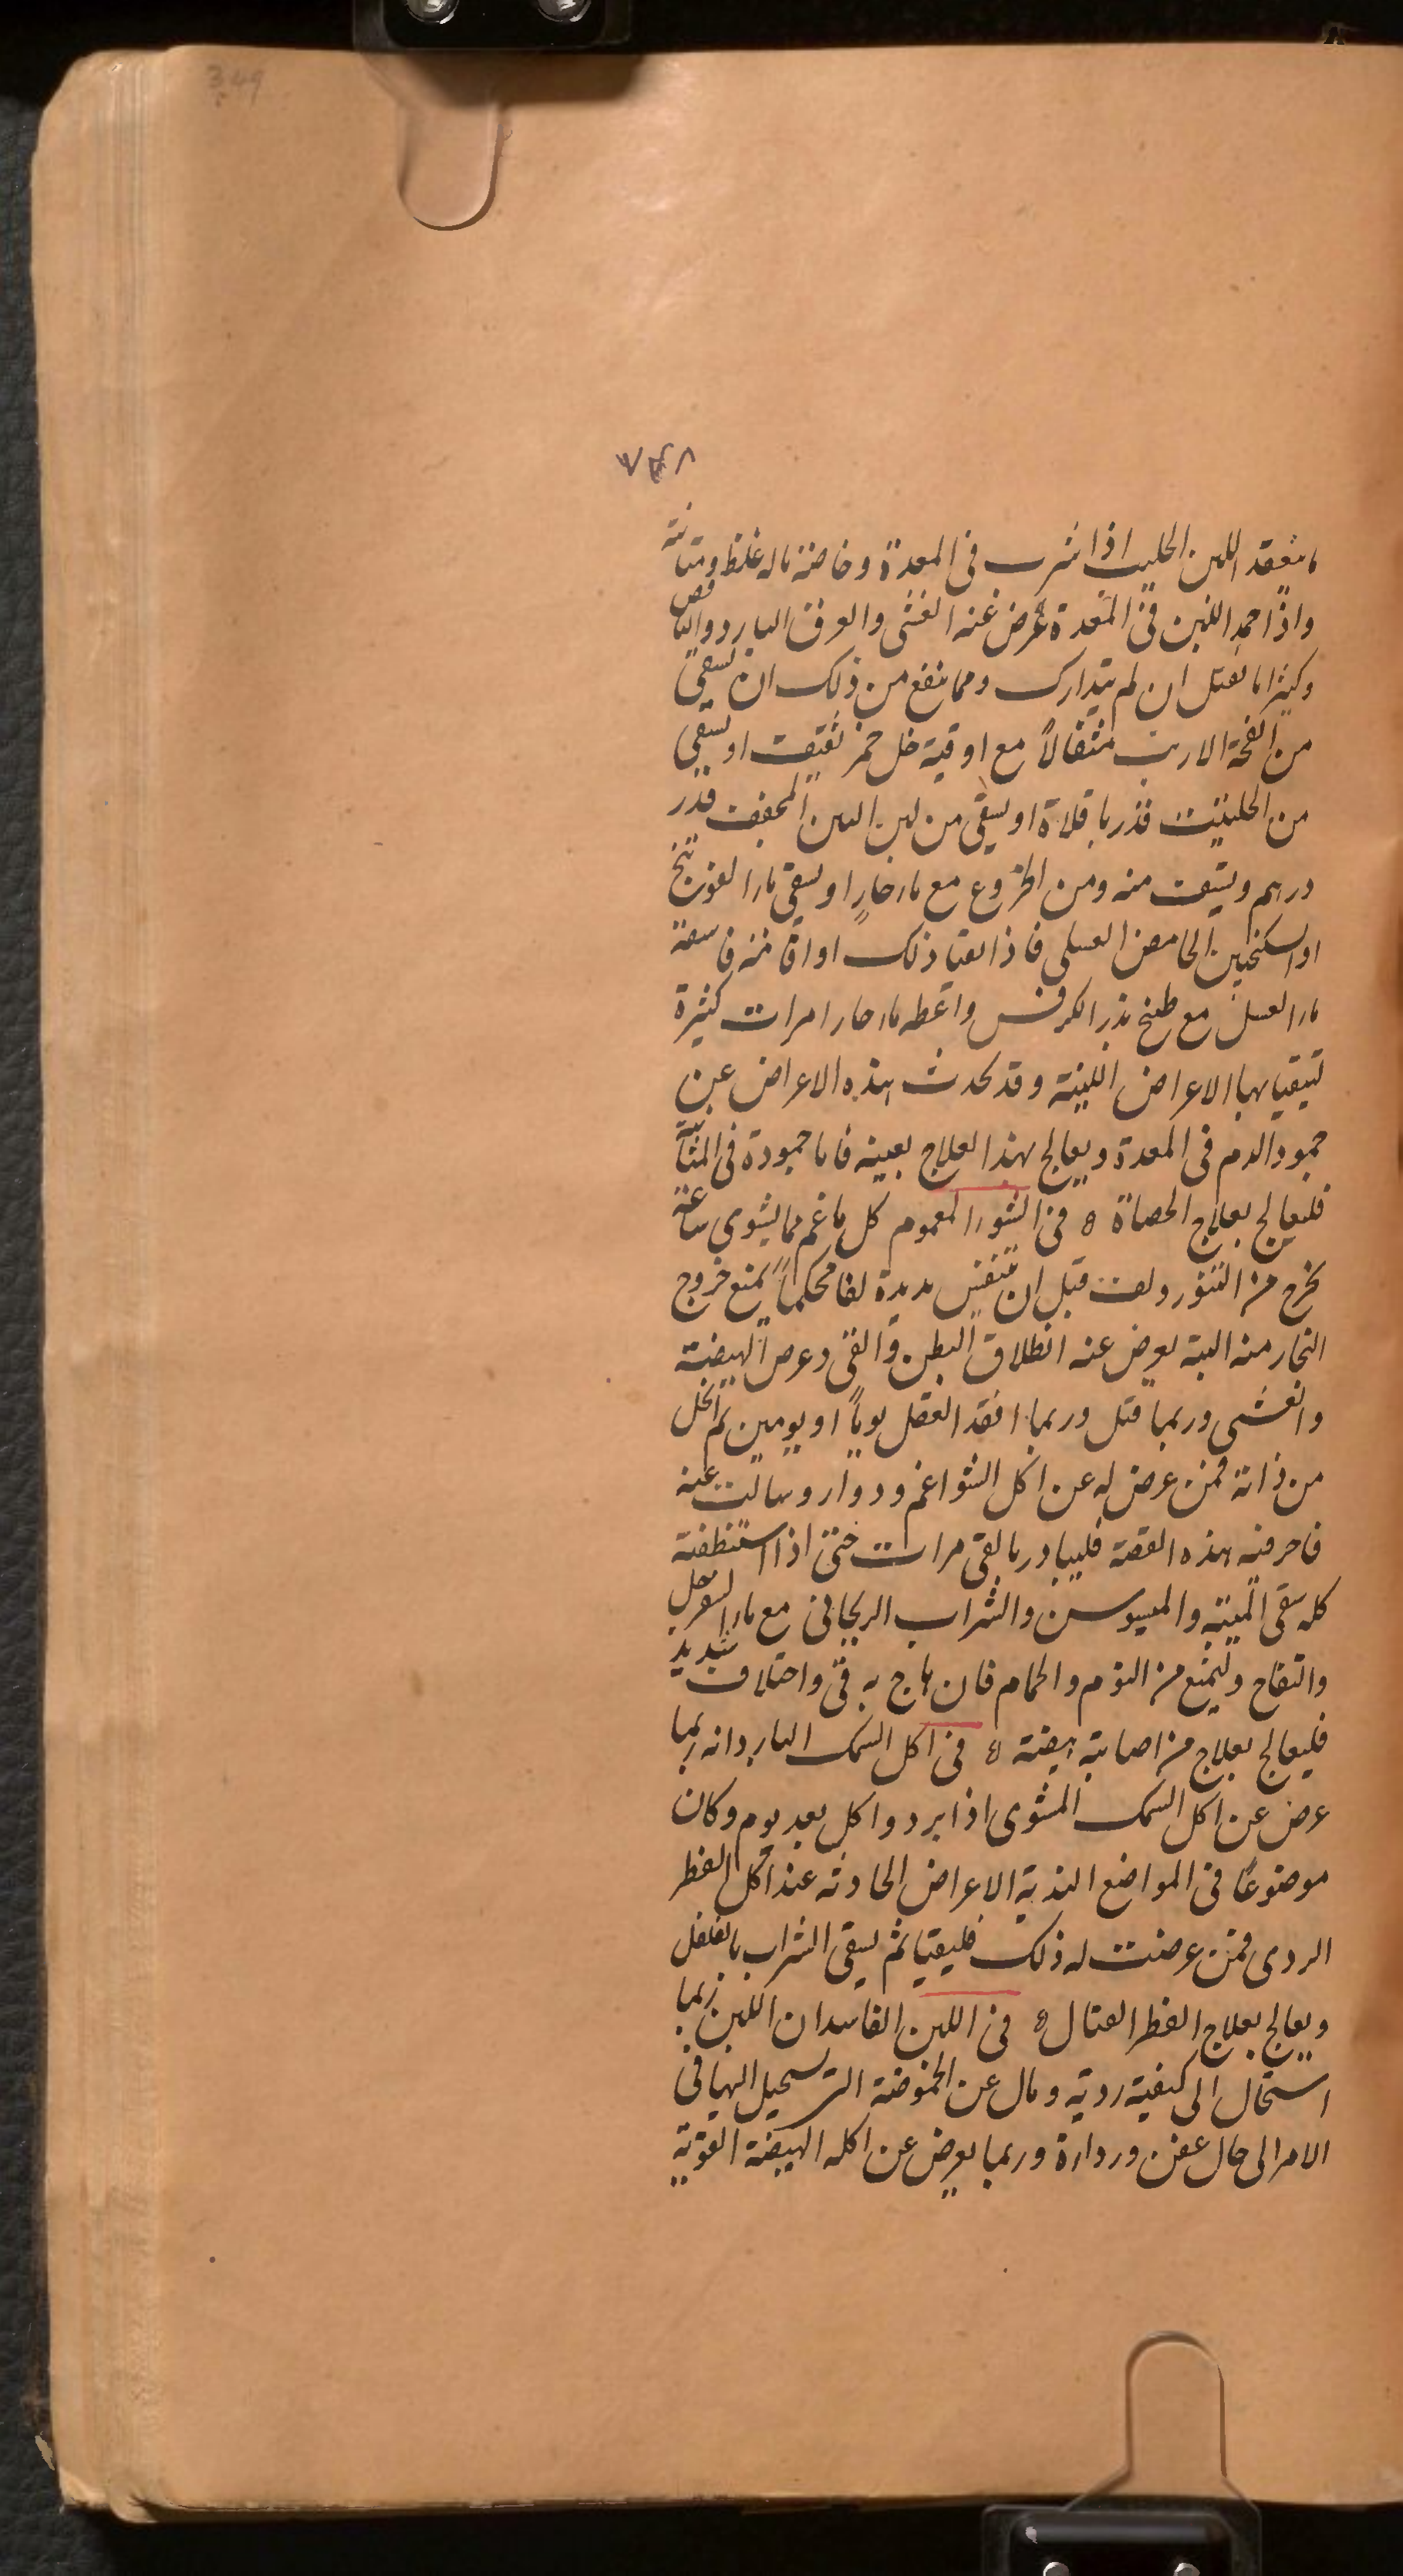 349
٧٤٨
ما ينعقد اللبن الحليب اذا شرب فى المعدة وخاصة ما له غلظ ومتانة
واذا جمد اللبن فى المعدة عرض عنه الغشى والعرق البارد والنافض
وكثيرا ما يقتل ان لم يتدارك ومما ينفع من ذلك ان يسقى
من انفحة الارنب مثقالاً مع اوقية خل خمر ثقيف او يسقى
من الحلتيت قدر باقلاة او يسقى من لبن التين المجفف قدر
درهم ويتقيا منه ومن الخروع مع ماء حار او يسقى ماء الفوتنج
او السكنجبين الحامض العسلى فاذا تقيا ذلك او افاق منه فاسقه
ماء العسل مع طبيخ بذر الكرفس واعطه ماء حارا مرات كثيرة
تبقيا بها الاعراض اللبنية وقد يحدث هذه الاعراض عن
جمود الدم فى المعدة ويعالج بهذا العلاج بعينه فاما جمودة فى المثانة
فليعالج بعلاج الحصاة ه فى الشواء المغموم كل ما غم مما يشوى ساعة
يخرج من التنور ولف قبل ان يتنفس مديدة لفا محكماً يمنع خروج
البخار منه البتة يعرض عنه انطلاق البطن والقئ وعرض الهيضة
والغشى وربما قتل وربما افقد العقل يوماً او يومين ثم انحل
من ذاته فمن عرض له عن اكل الشوا غم ودوار وسالت عنه
فاخر فيه هذه القصة فليبادر بالقئ مرات حتى اذا استنظفته
كله سقى الميبه والميسوسن والشراب الريحانى مع ماء السفرجل
والتفاح وليمنع من النوم والحمام فان هاج به قئ واختلاف شديد
فليعالج بعلاج من اصابته هيضة ه فى اكل السمك البارد انه ربما
عرض عن اكل السمك المشوى اذا برد واكل بعد يوم وكان
موضوعاً فى المواضع الندية الاعراض الحادثه عند اكل الفطر
الردى فمن عرضت له ذلك فليقيا ثم يسقى الشراب بالفلفل
ويعالج بعلاج الفطر القتال ه فى اللبن الفاسد ان اللبن ربما
استحال الى كيفية ردية ومال عن الحموضة التى يستحيل اليها فى
الامر الى حال عفن ورداءة وربما يعرض عن اكله الهيضة القوية